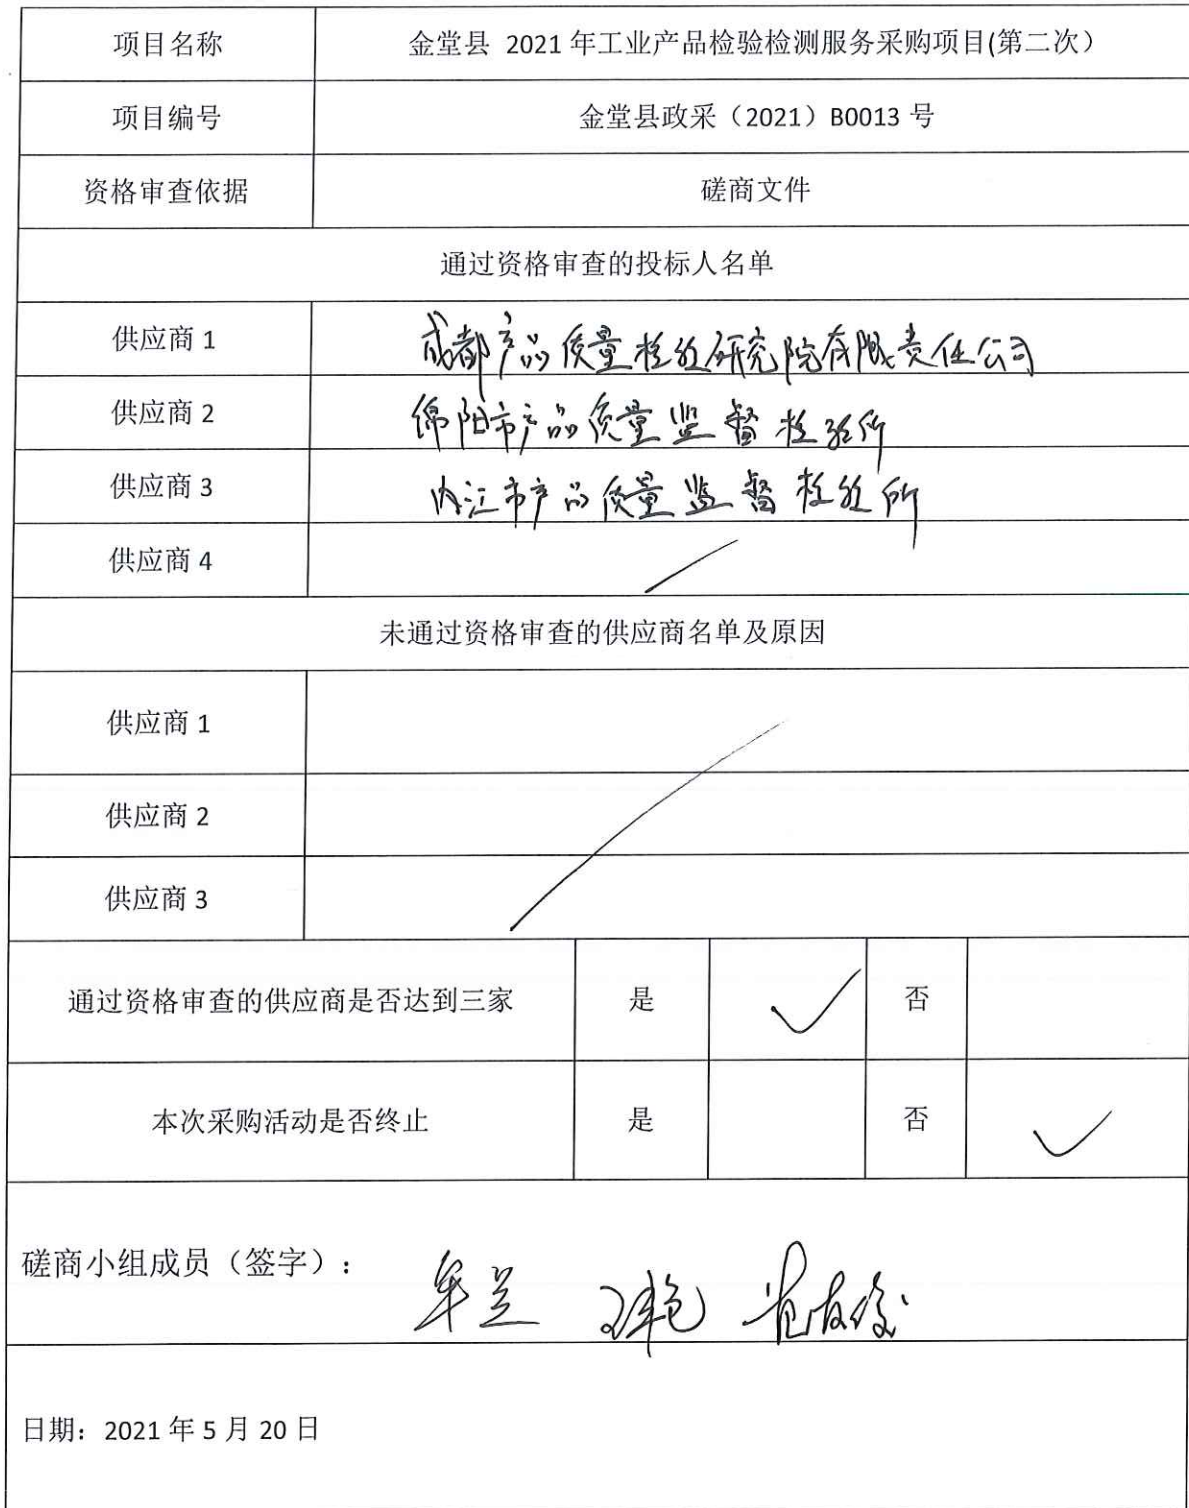 项目名称 金堂县 2021 年工业产品检验检测服务采购项目(第二次）
项目编号 金堂县政采（2021）B0013 号
资格审查依据 磋商文件
通过资格审查的投标人名单
供应商 1 成都产品质量检验研究院有限责任公司
供应商 2 绵阳市产品质量监督检验所
供应商 3 内江市产品质量监督检验所
供应商 4
未通过资格审查的供应商名单及原因
供应商 1
供应商 2
供应商 3
通过资格审查的供应商是否达到三家 是 ✓ 否
本次采购活动是否终止 是 否 ✓
磋商小组成员（签字）：
日期：2021 年 5 月 20 日